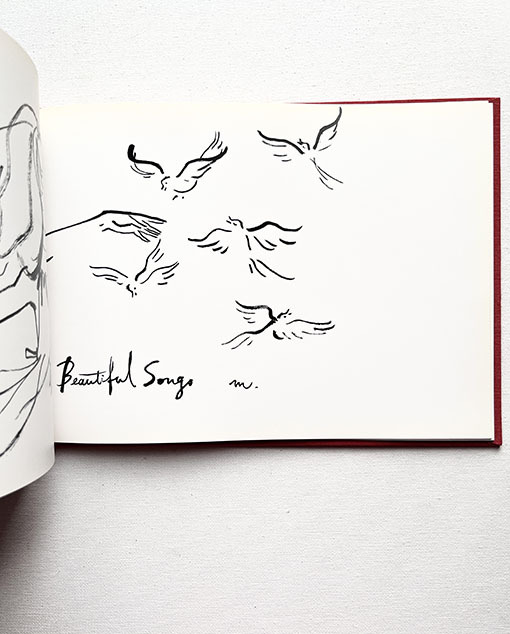 Beautiful Songs m.